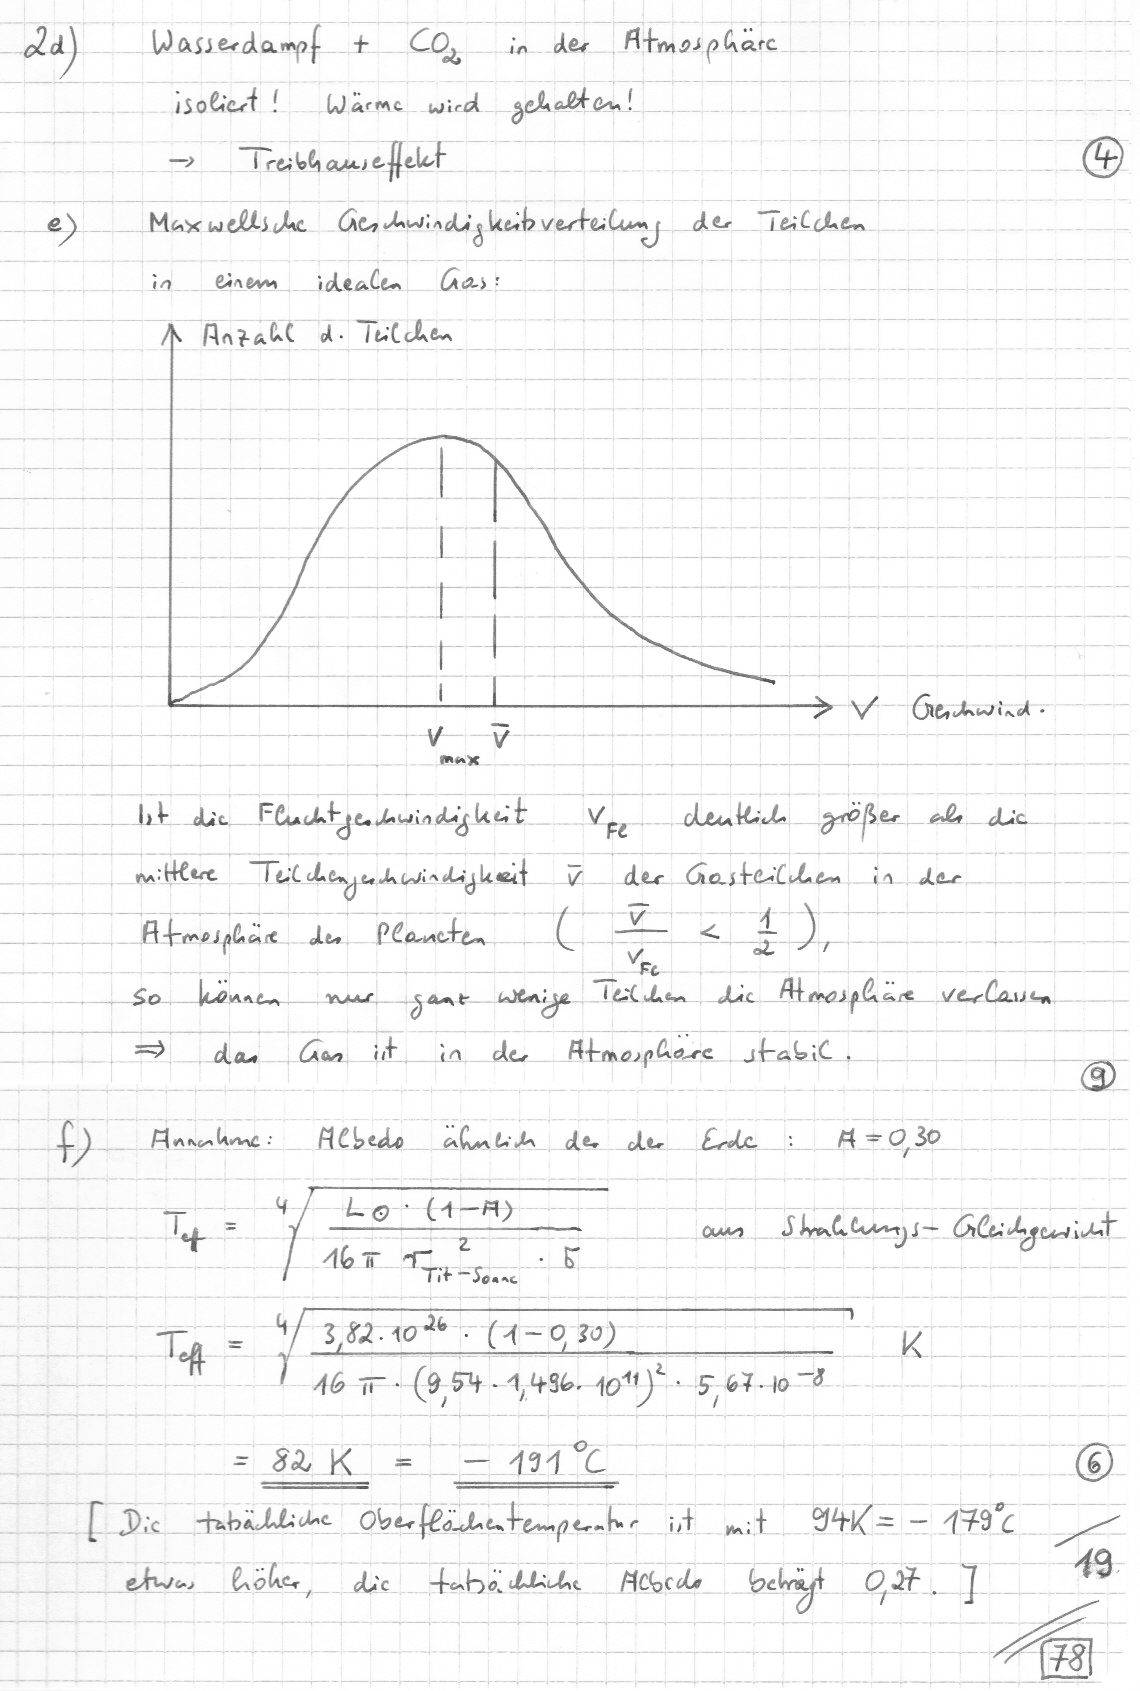 2d) Wasserdampf + CO₂ in der Atmosphäre
isoliert! Wärme wird gehalten!
→ Treibhauseffekt
④
e) Maxwellsche Geschwindigkeitsverteilung der Teilchen
in einem idealen Gas:
Anzahl d. Teilchen
V Geschwind.
V_max V̄
Ist die Fluchtgeschwindigkeit V_Fl deutlich größer als die
mittlere Teilchengeschwindigkeit v̄ der Gasteilchen in der
Atmosphäre des Planeten ( v̄ / v_Fl < 1/2 ),
so können nur ganz wenige Teilchen die Atmosphäre verlassen
⇒ das Gas ist in der Atmosphäre stabil.
⑨
f) Annahme: Albedo ähnlich der der Erde : A = 0,30
T_eff = ⁴√( L☉ · (1-A) / 16 π r²_Tit-Sonne · σ ) aus Strahlungs-Gleichgewicht
T_eff = ⁴√( 3,82 · 10²⁶ · (1-0,30) / 16 π · (9,54 · 1,496 · 10¹¹)² · 5,67 · 10⁻⁸ ) K
= 82 K = - 191 °C
⑥
[ Die tatsächliche Oberflächentemperatur ist mit 94K = - 179°C
etwas höher, die tatsächliche Albedo beträgt 0,27. ]
19
78